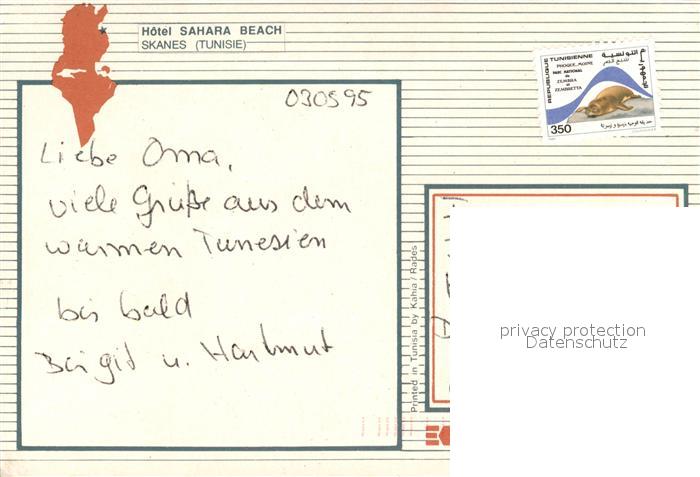 Hôtel SAHARA BEACH
SKANES (TUNISIE)
REPUBLIQUE TUNISIENNE
PHOQUE-MOINE
PARC NATIONAL
de
ZEMBRA
et
ZEMBRETTA
350
030595
Liebe Oma,
viele Grüße aus dem
warmen Tunesien
bis bald
Birgit u. Hartmut
Printed in Tunisia by Kahia / Rades
privacy protection
Datenschutz